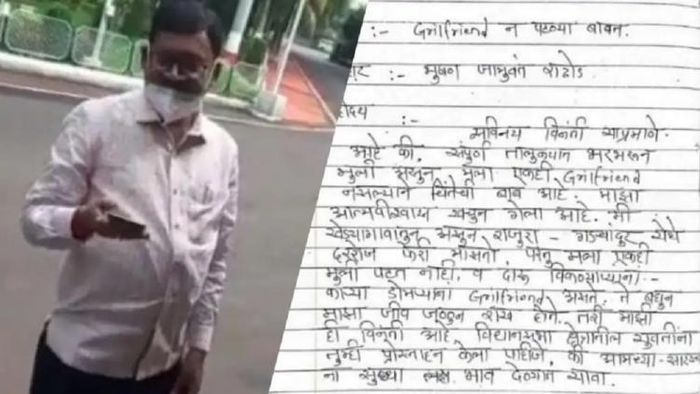 :- Grilfriend न पटल्या बाबत.
:- भुषण जांबुवंत राठोड.
:-
सविनय विनंती याप्रमाणे
आहे की, संपुर्ण तालुक्यात भरभरून
मुली असुन मला एकही Grilfriend
नसल्याने चिंतेची बाब आहे. माझा
आत्मविश्वास खचुन गेला आहे. मी
खेड्यागावातुन असुन राजुरा - गडचांदुर येथे
दररोज फेरी मारतो, परंतु मला एकही
मुली पटत नाही. व दारु विकणाऱ्यांना -
काळ्या डोमळ्यांना Grilfriend असते. ते बघुन
माझा जीव जळुन राख होतो. तरी माझी
ही विनंती आहे विधानसभा क्षेत्रातील युवतींना
तुम्ही प्रोत्साहन केला पाहिजे, की आमच्या-सारख्या
ना सुध्दा भाव देण्यात यावा.